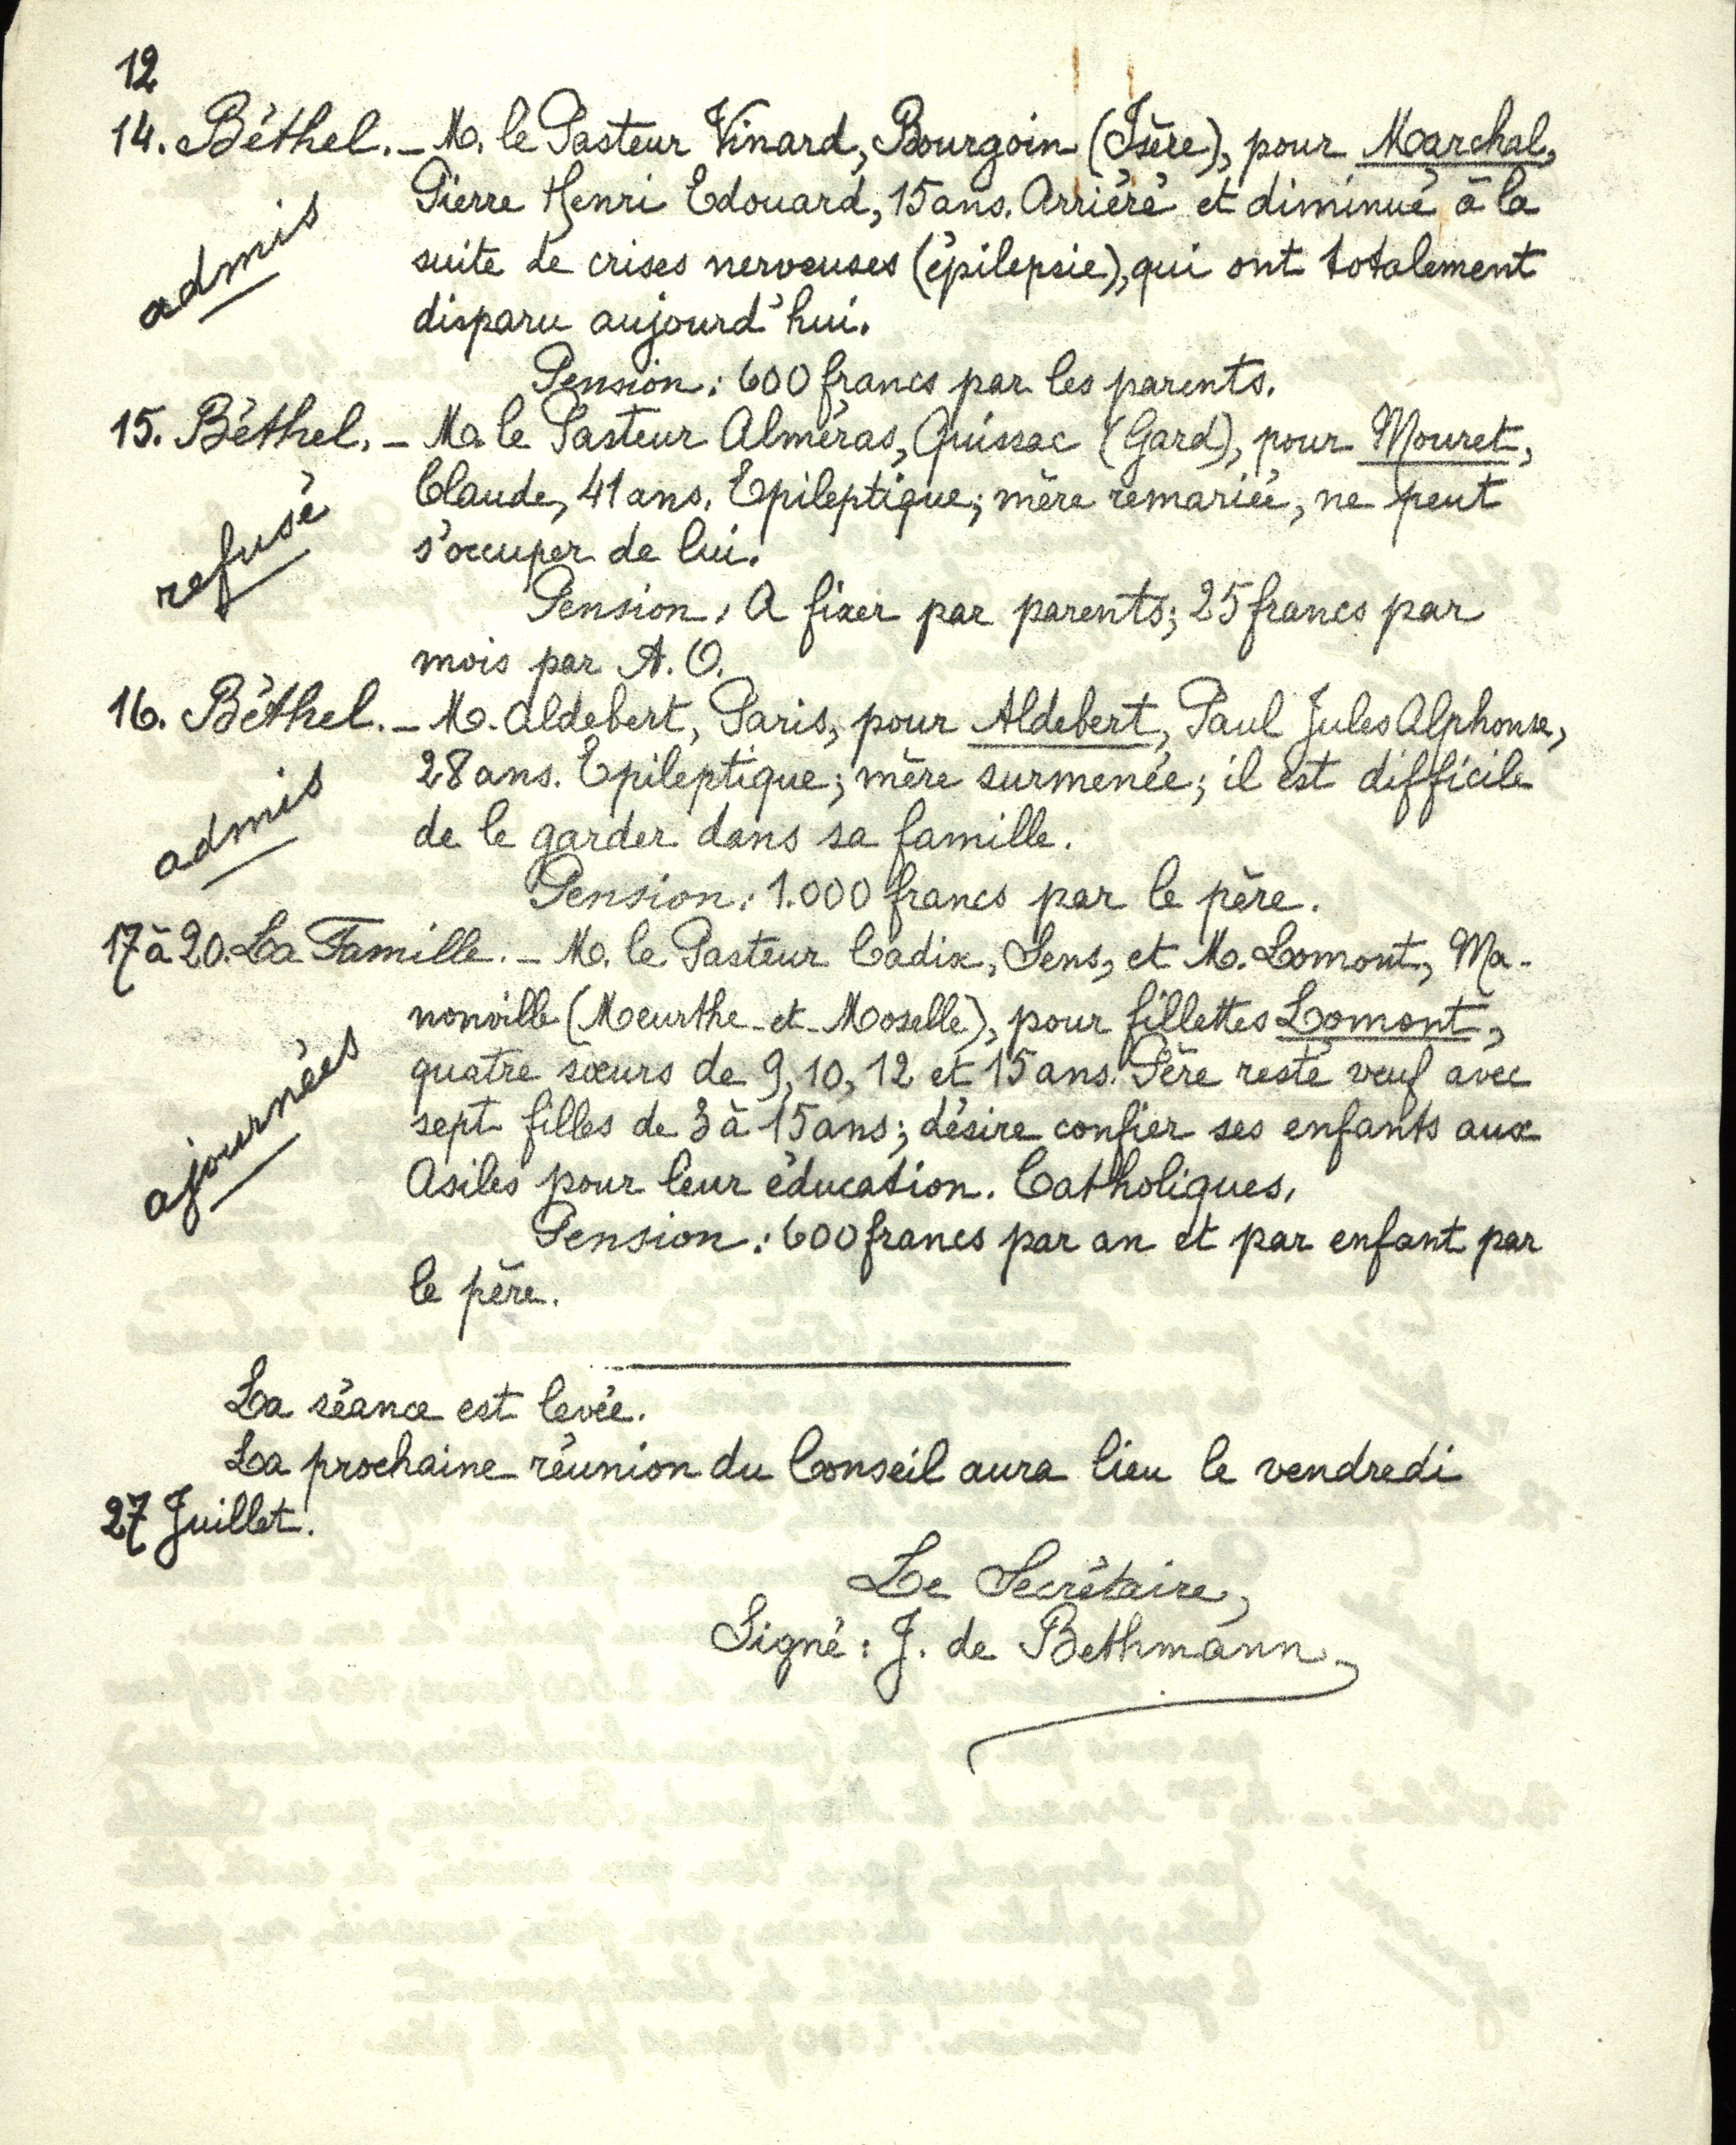 12
14. Béthel. _ M. le Pasteur Vinard, Bourgoin (Isère), pour Marchal,
Pierre Henri Edouard, 15 ans. Arriéré et diminué à la
admis
suite de crises nerveuses (épilepsie), qui ont totalement
disparu aujourd'hui.
Pension : 600 francs par les parents.
15. Béthel. _ M. le Pasteur Alméras, Quissac (Gard), pour Mouret,
Claude, 41 ans. Epileptique; mère remariée, ne peut
refusé
s'occuper de lui.
Pension : A fixer par parents; 25 francs par
mois par A. O.
16. Béthel. _ M. Aldebert, Paris, pour Aldebert, Paul Jules Alphonse,
28 ans. Epileptique; mère surmenée; il est difficile
admis
de le garder dans sa famille.
Pension : 1.000 francs par le père.
17 à 20. La Famille. _ M. le Pasteur Cadix, Sens, et M. Lomont, Ma-
nonville (Meurthe-et-Moselle), pour fillettes Lomont,
quatre sœurs de 9, 10, 12 et 15 ans. Père resté veuf avec
ajournées
sept filles de 3 à 15 ans; désire confier ses enfants aux
Asiles pour leur éducation. Catholiques.
Pension : 600 francs par an et par enfant par
le père.
La séance est levée.
La prochaine réunion du Conseil aura lieu le vendredi
27 Juillet.
Le Secrétaire,
Signé : J. de Bethmann